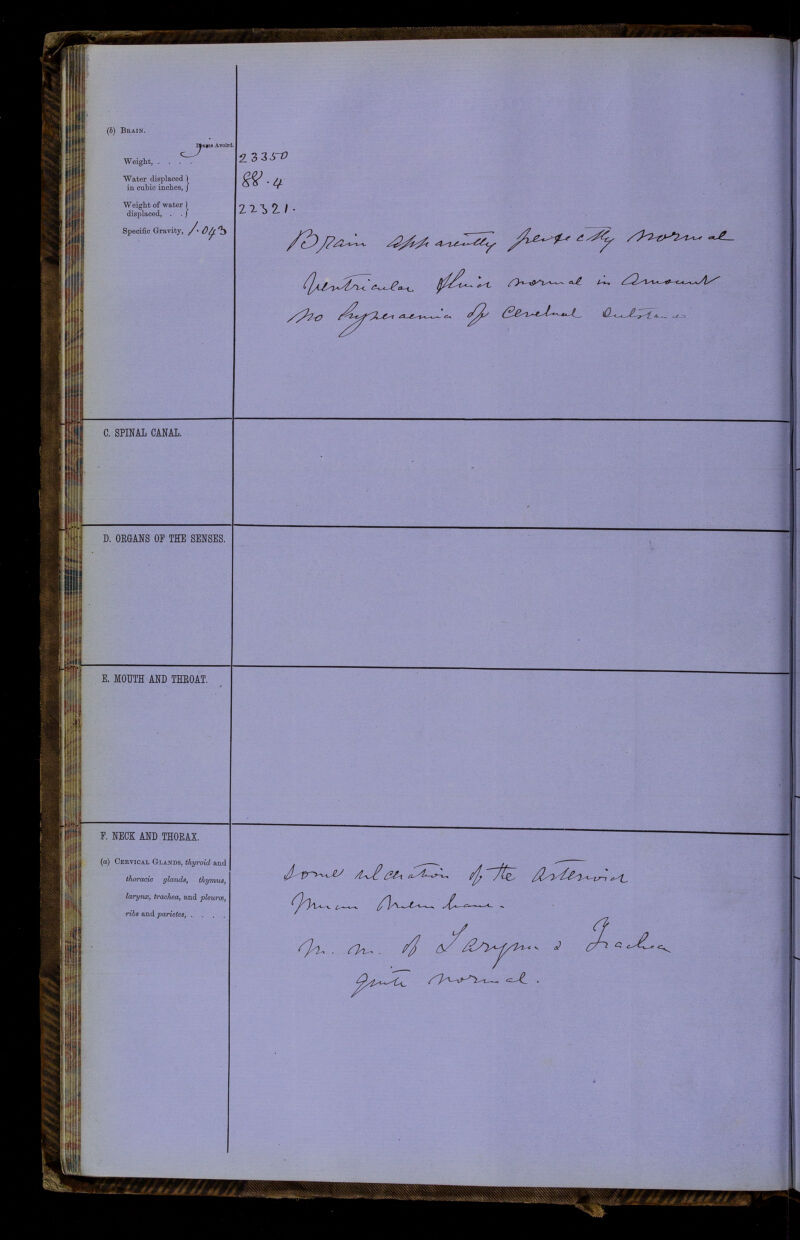 (b) BRAIN.
Avoird.
Weight, . . . . 23350
Water displaced
in cubic inches, } 88.4
Weight of water
displaced, . . } 22321.
Specific Gravity, 1.043
Brain apparently perfectly normal
Ventricular fluid normal in amount
no hyperaemia of cerebral substance
C. SPINAL CANAL.
D. ORGANS OF THE SENSES.
E. MOUTH AND THROAT.
F. NECK AND THORAX.
(a) CERVICAL GLANDS, thyroid and
thoracic glands, thymus,
larynx, trachea, and pleuræ,
ribs and parietes, . . . .
Some ulceration of the
m. m. of Larynx & Trachea
quite normal.